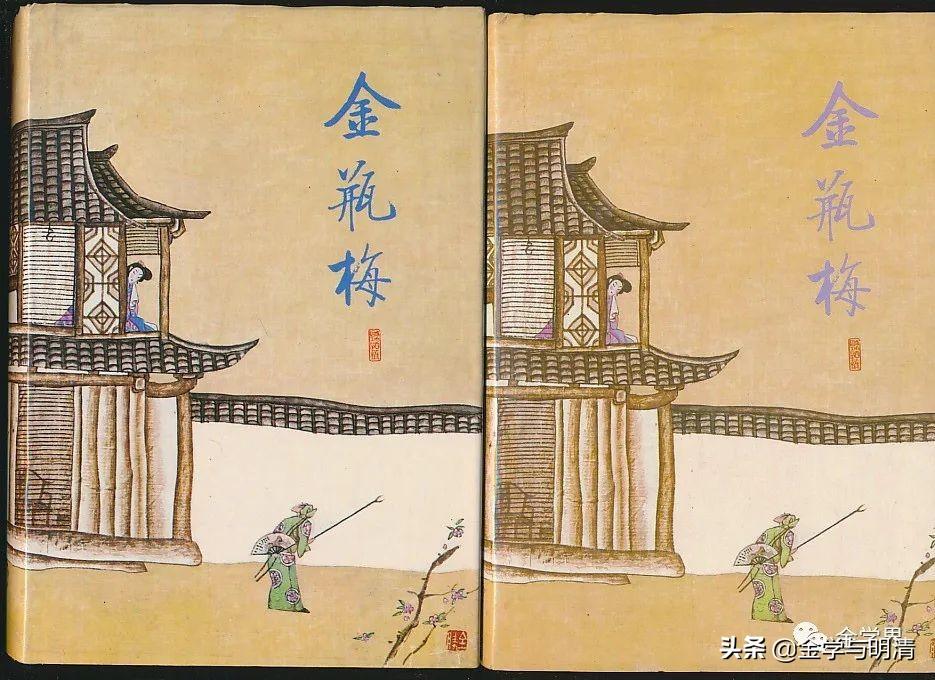 金瓶梅
金瓶梅
金学界
头条 @金学与明清